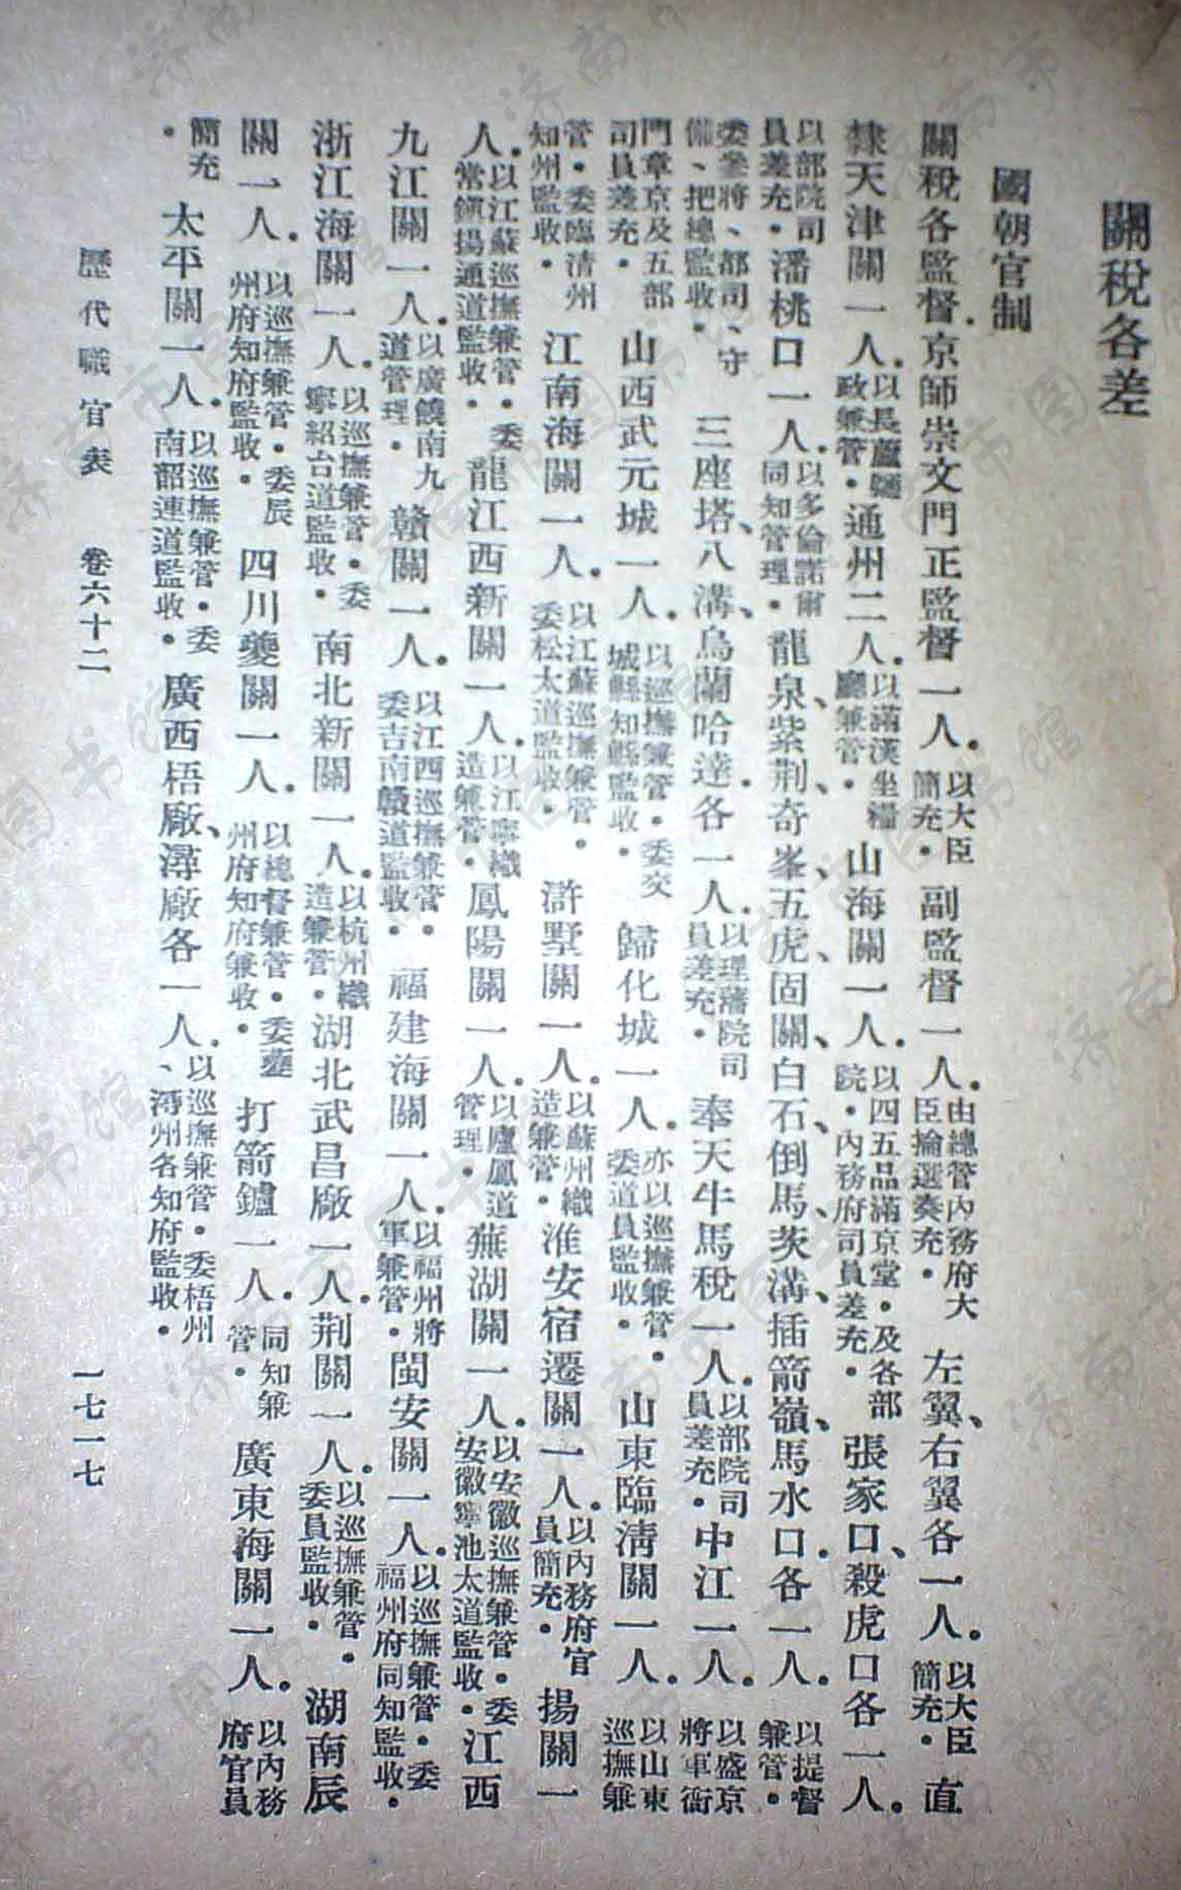 關稅各差
國朝官制
關稅各監督京師崇文門正監督一人。以大臣簡充。副監督一人。由總管內務府大臣掄選奏充。左翼、右翼各一人。以大臣簡充。直
隸天津關一人。以長蘆鹽政兼管。通州二人。以滿漢坐糧廳兼管。山海關一人。以四五品滿京堂。及各部院。內務府司員差充。張家口、殺虎口各一人。
以部院司員差充。潘桃口一人。以多倫諾爾同知管理。龍泉、紫荊、奇峯、五虎、固關、白石、倒馬、茨溝、插箭嶺、馬水口各一人。以提督兼管。
委參將、都司、守備、把總監收。三座塔、八溝、烏蘭哈達各一人。以理藩院司員差充。奉天牛馬稅一人。以部院司員差充。中江一人。以盛京將軍衙
門章京及五部司員差充。山西武元城一人。以巡撫兼管。委交城縣知縣監收。歸化城一人。亦以巡撫兼管。委道員監收。山東臨清關一人。以山東巡撫兼
管。委臨清州知州監收。江南海關一人。以江蘇巡撫兼管。委松太道監收。滸墅關一人。以蘇州織造兼管。淮安宿遷關一人。以內務府官員簡充。揚關一
人。以江蘇巡撫兼管。委常鎮揚通道監收。龍江西新關一人。以江寧織造兼管。鳳陽關一人。以廬鳳道管理。蕪湖關一人。以安徽巡撫兼管。委安徽寧池太道監收。江西
九江關一人。以廣饒南九道管理。贛關一人。以江西巡撫兼管。委吉南贛道監收。福建海關一人。以福州將軍兼管。閩安關一人。以巡撫兼管。委福州府同知監收。
浙江海關一人。以巡撫兼管。委寧紹台道監收。南北新關一人。以杭州織造兼管。湖北武昌廠一人。荆關一人。以巡撫兼管。委員監收。湖南辰
關一人。以巡撫兼管。委辰州府知府監收。四川夔關一人。以總督兼管。委夔州府知府兼收。打箭鑪一人。同知兼管。廣東海關一人。以內務府官員
簡充。太平關一人。以巡撫兼管。委南韶連道監收。廣西梧廠、潯廠各一人。以巡撫兼管。委梧州、潯州各知府監收。
歷代職官表 卷六十二 一七一七
济南市图书馆